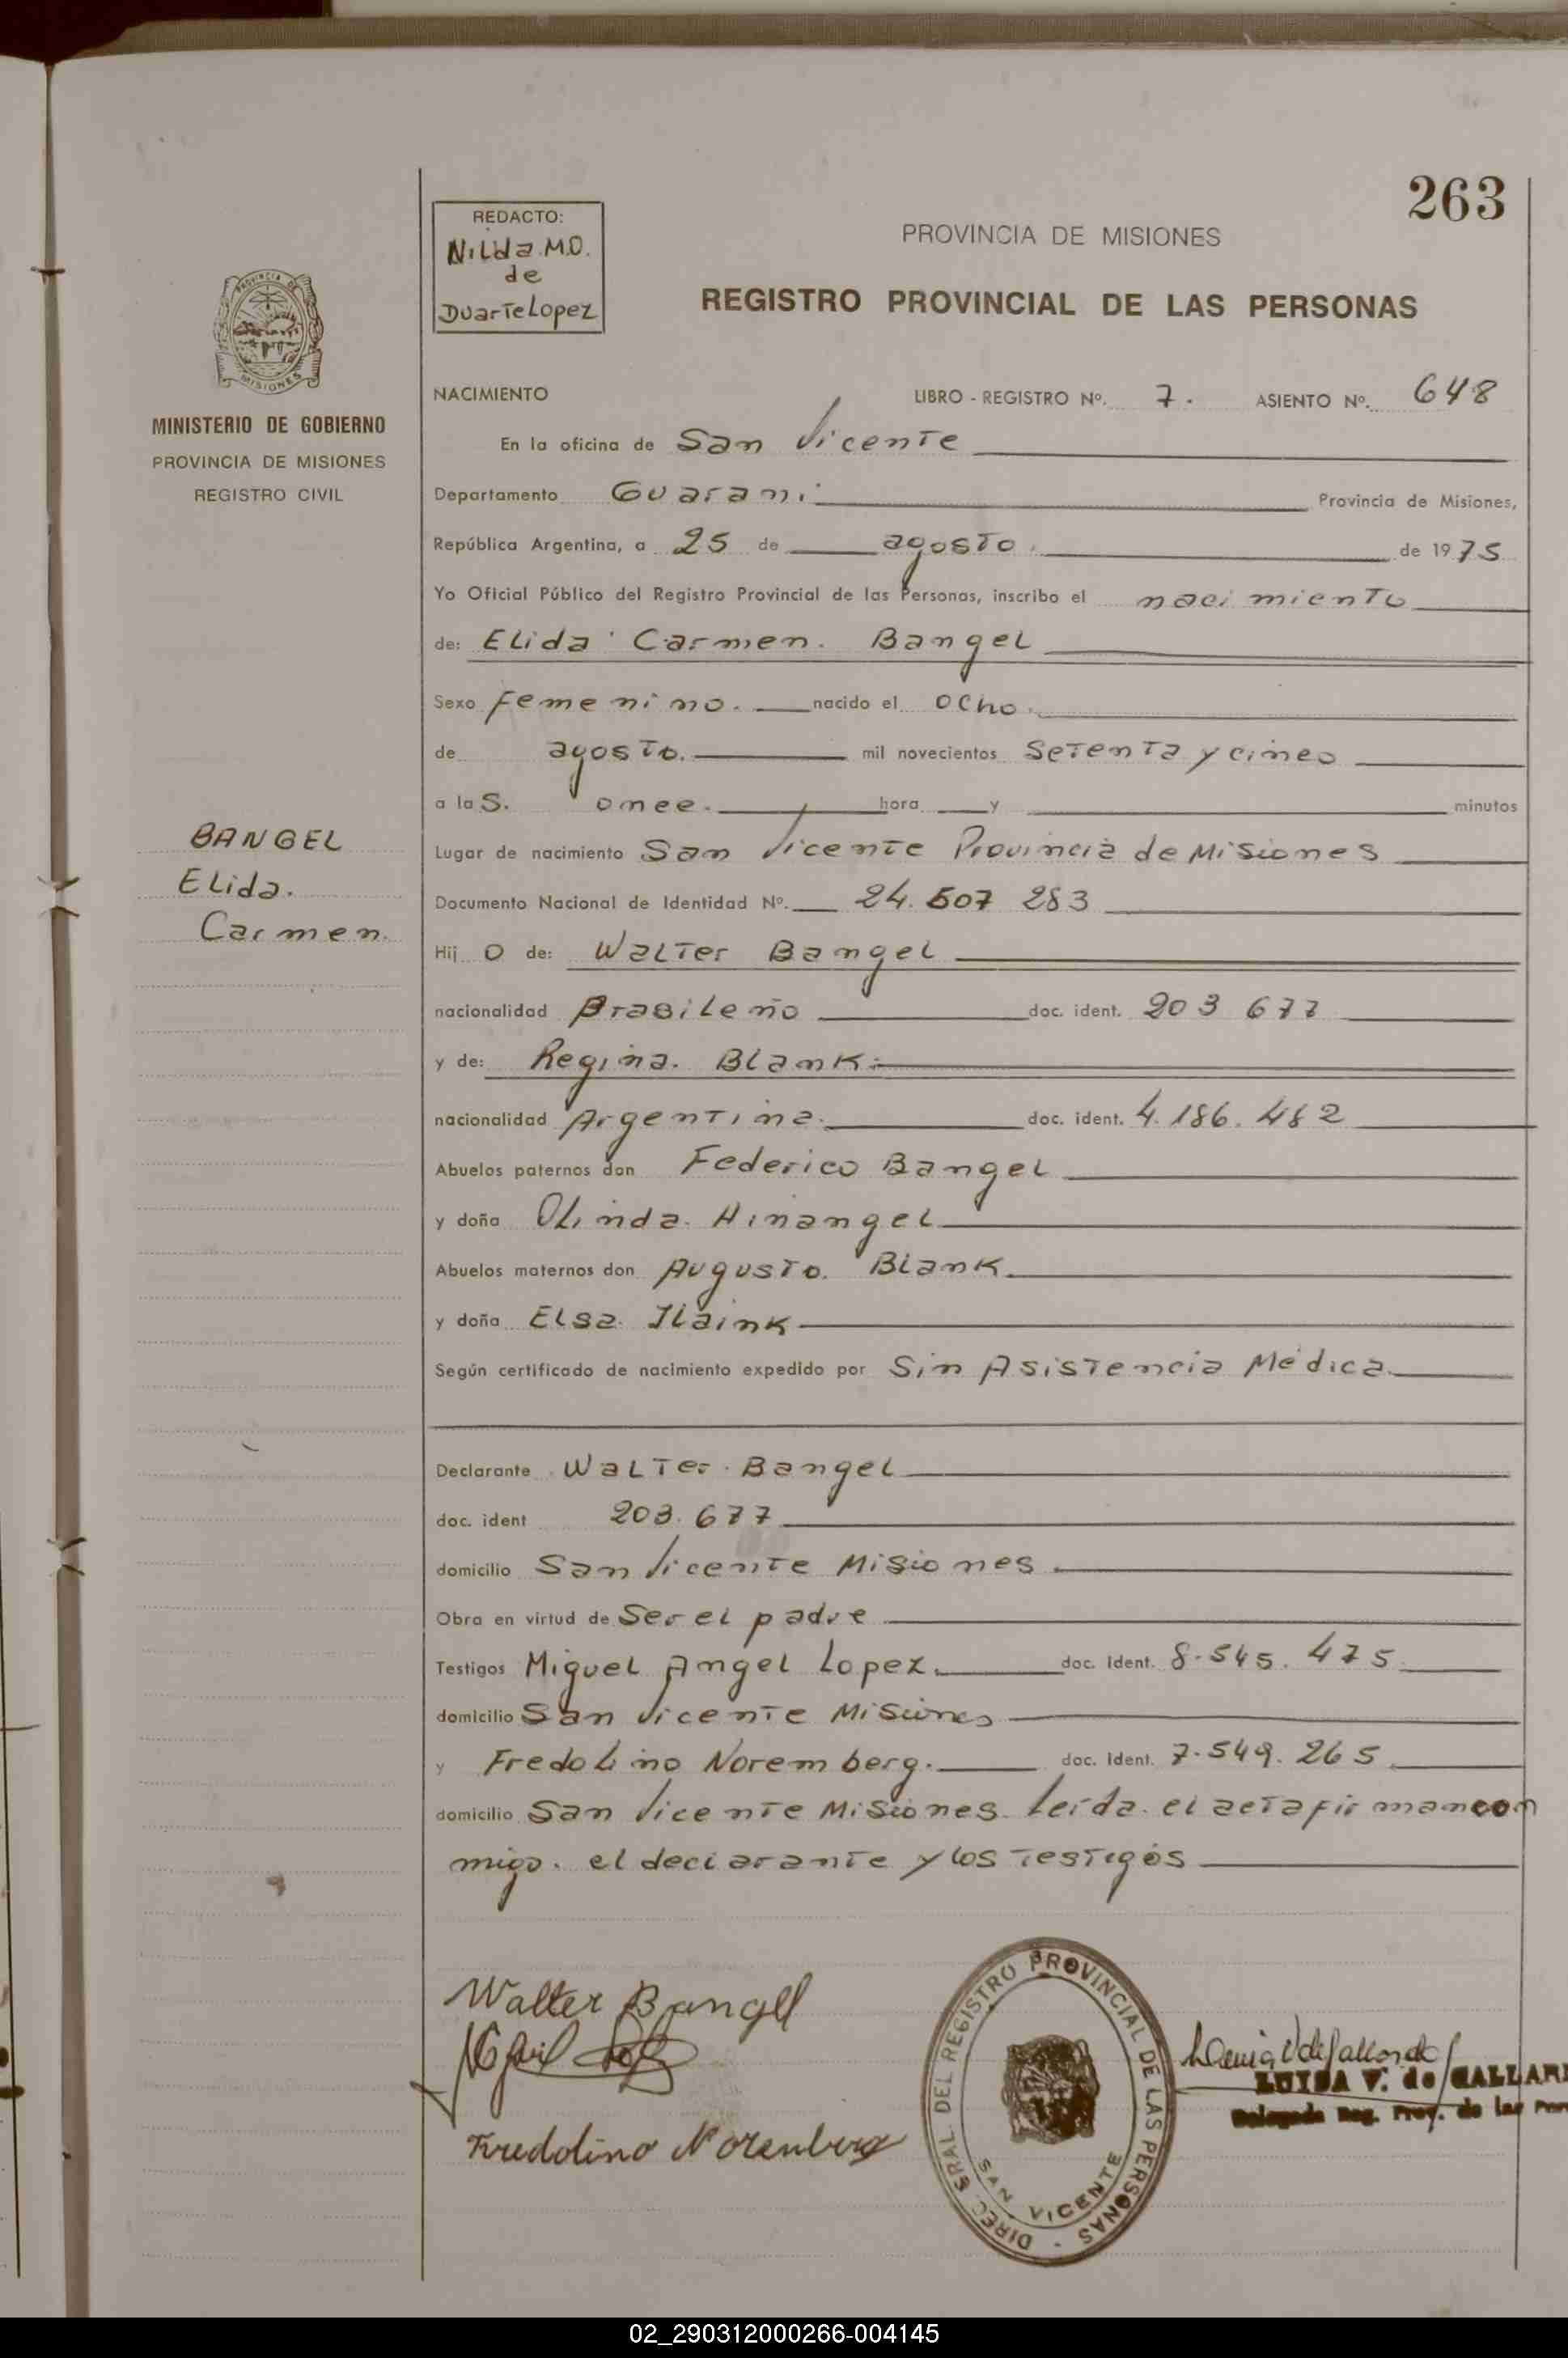 263
REDACTO:
Nilda M.O.
de
Duarte Lopez
PROVINCIA DE MISIONES
REGISTRO PROVINCIAL DE LAS PERSONAS
PROVINCIA DE
MISIONES
MINISTERIO DE GOBIERNO
PROVINCIA DE MISIONES
REGISTRO CIVIL
BANGEL
Elida.
Carmen.
NACIMIENTO LIBRO - REGISTRO Nº. 7. ASIENTO Nº. 648
En la oficina de San Vicente
Departamento Guarani Provincia de Misiones,
República Argentina, a 25 de agosto. de 1975
Yo Oficial Público del Registro Provincial de las Personas, inscribo el nacimiento
de: Elida Carmen. Bangel
Sexo femenino. nacido el ocho.
de agosto. mil novecientos setenta y cinco
a las. once. hora y minutos
Lugar de nacimiento San Vicente Provincia de Misiones
Documento Nacional de Identidad Nº. 24.507 283
Hijo de: Walter Bangel
nacionalidad Brasileño doc. ident. 203 677
y de: Regina. Blank.
nacionalidad Argentina. doc. ident. 4.186.482
Abuelos paternos don Federico Bangel
y doña Olinda. Hinangel
Abuelos maternos don Augusto. Blank.
y doña Elsa. Ilaink
Según certificado de nacimiento expedido por Sin Asistencia Médica.
Declarante Walter. Bangel
doc. ident 203.677
domicilio San Vicente Misiones.
Obra en virtud de Ser el padre
Testigos Miguel Angel Lopez. doc. Ident. 8.545.475
domicilio San Vicente Misiones
y Fredolino Noremberg. doc. Ident. 7.549.265
domicilio San Vicente Misiones. Leída. el acta firman con
migo. el declarante y los testigos
Walter Bangel
Fredolino Norenberg
DIREC. GRAL. DEL REGISTRO PROVINCIAL DE LAS PERSONAS -
SAN VICENTE
LUISA V. de GALLAR
Delegada Reg. Prov. de las Per
02_290312000266-004145